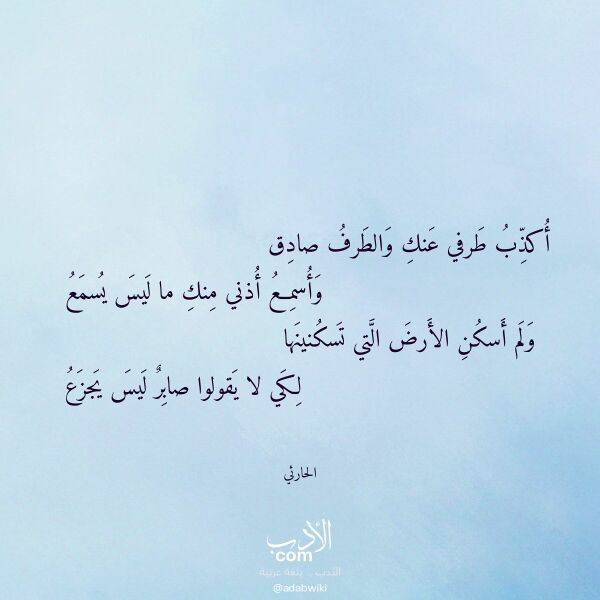 أُكَذِّبُ طَرفي عَنكِ وَالطَرفُ صادِق
وَأُسمِعُ أُذني مِنكِ ما لَيسَ يُسمَعُ
وَلَم أَسكُنِ الأَرضَ الَّتي تَسكُنينَها
لِكَي لا يَقولوا صابِرٌ لَيسَ يَجزَعُ
الحارثي
الأدب
com
الأدب .. بلغة عربية
@adabwiki